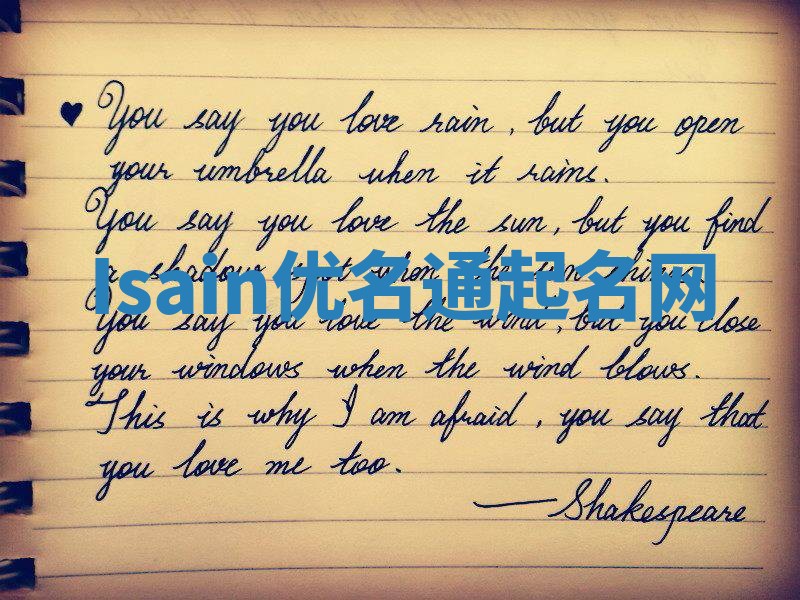 ♥ You say you love rain, but you open
your umbrella when it rains.
You say you love the sun, but you find
a shadow spot when the sun shines.
Isain优名通起名网
You say you love the wind, but you close
your windows when the wind blows.
This is why I am afraid, you say that
you love me too.
—Shakespeare